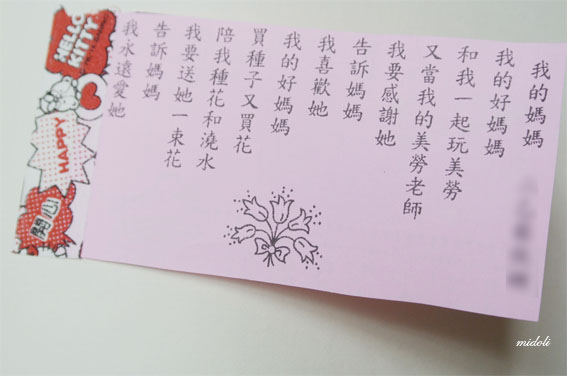 我的媽媽
我的好媽媽
和我一起玩美勞
又當我的美勞老師
我要感謝她
告訴媽媽
我喜歡她
我的好媽媽
買種子又買花
陪我種花和澆水
我要送她一束花
告訴媽媽
我永遠愛她
HELLO KITTY
HAPPY
開心
midoli